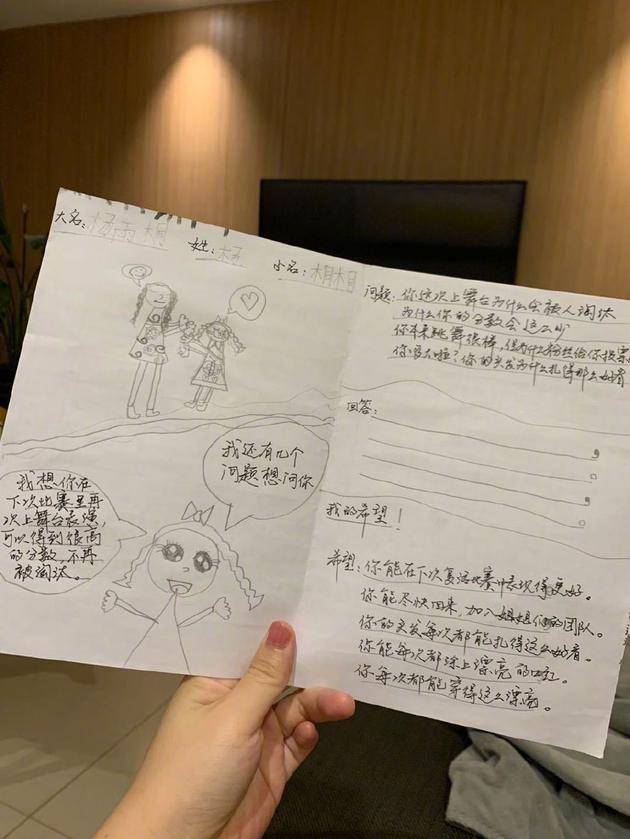 大名：杨雨桐
姓：杨
小名：桐桐
我还有几个
问题想问你
我想你在
下次比赛里再
次上舞台表演，
可以得到很高
的分数，不再
被淘汰。
问题：你这次上舞台为什么会被人淘汰
为什么你的分数会这么少
你本来跳舞很棒，但为什么粉丝给你投票
你多大啦？你的头发为什么扎得那么好看
回答：
我的希望！
希望：你能在下次复活比赛中表现得更好。
你能尽快回来，加入姐姐们的团队。
你的头发每次都能扎得这么好看。
你能每次都涂上漂亮的口红。
你每次都能穿得这么漂亮。